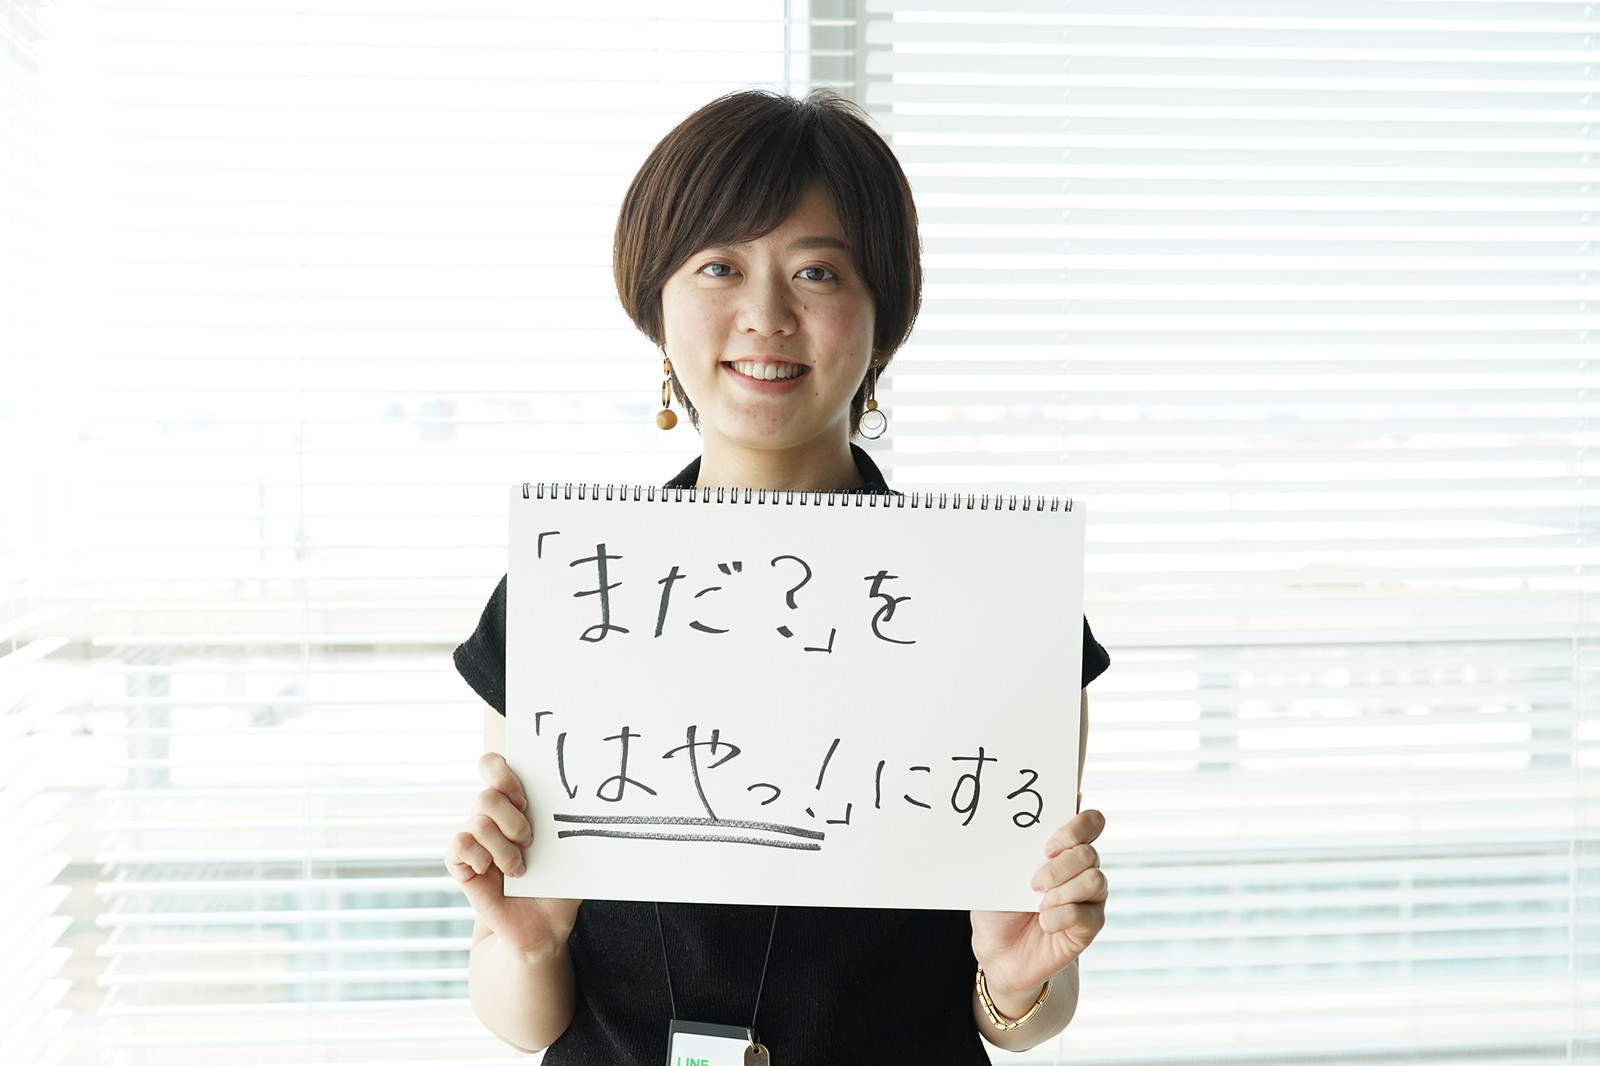 「まだ?」を
「はやっ!」にする
LINE